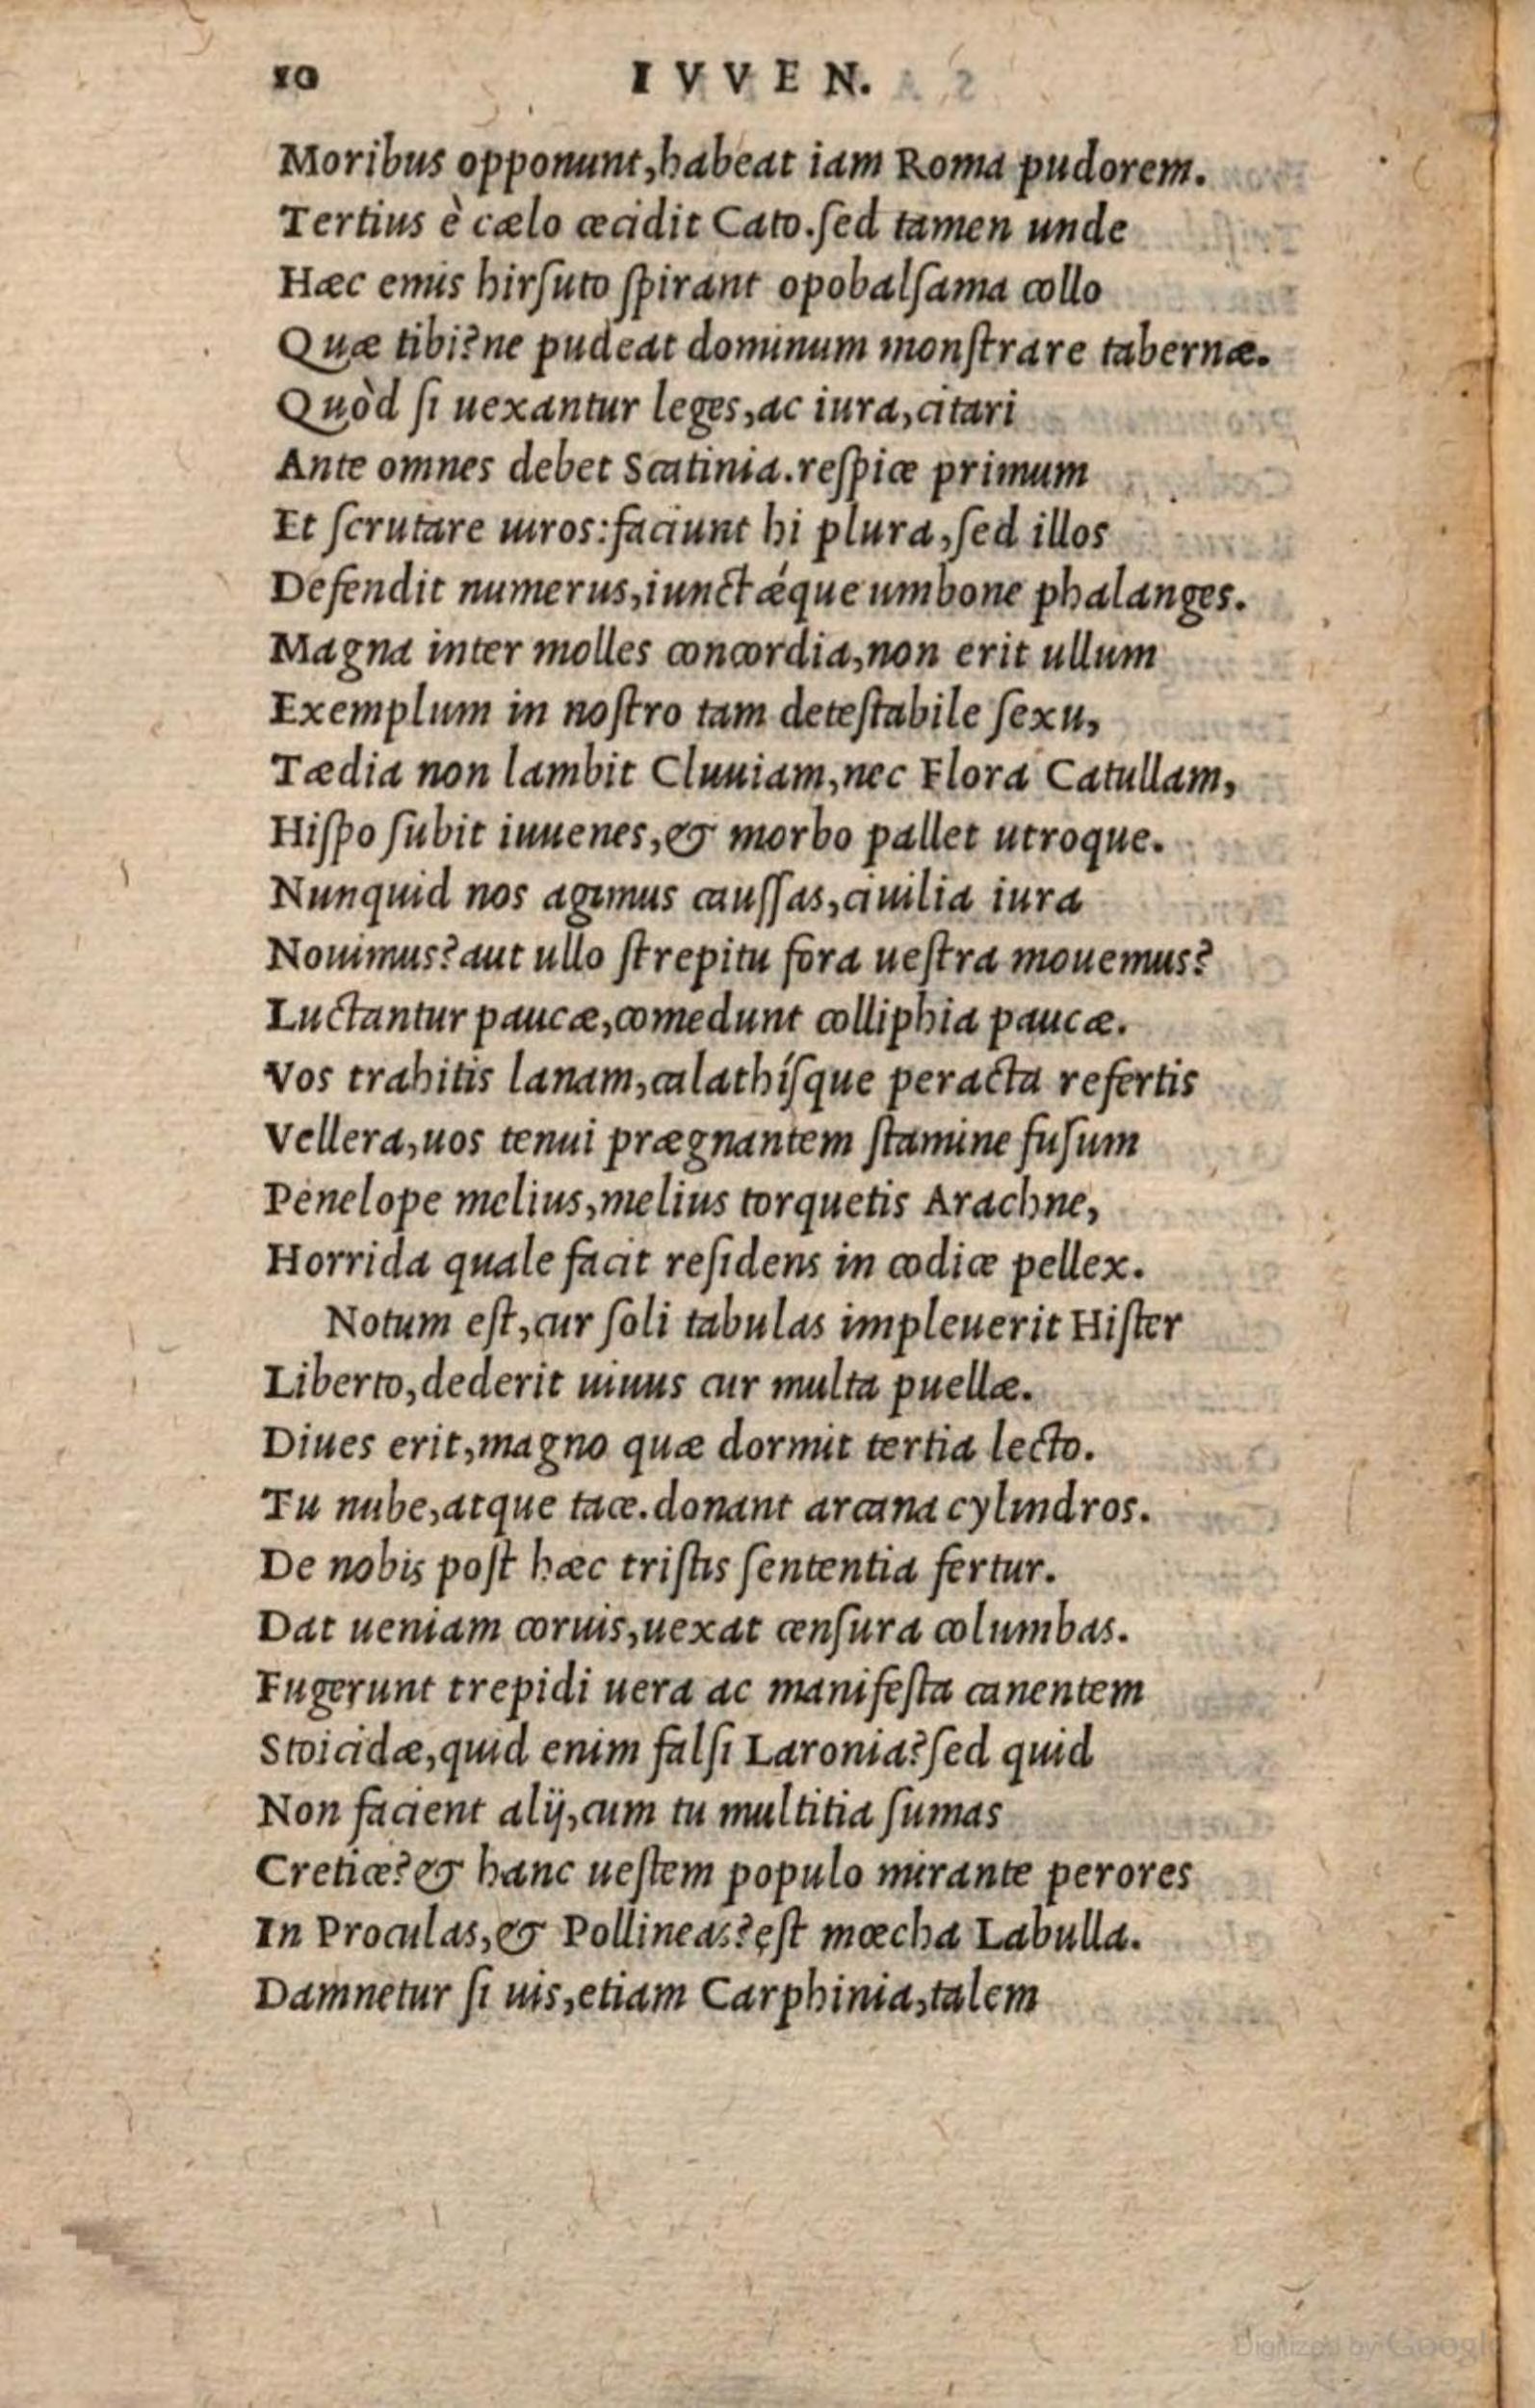 10 IVVEN.
Moribus opponunt,habeat iam Roma pudorem.
Tertius è cælo cecidit Cato.ſed tamen unde
Hæc emis hirſuto ſpirant opobalſama collo
Quæ tibi?ne pudeat dominum monſtrare tabernæ.
Quòd ſi uexantur leges,ac iura,citari
Ante omnes debet Scatinia.reſpice primum
Et ſcrutare uiros:faciunt hi plura,ſed illos
Defendit numerus,iunctǽque umbone phalanges.
Magna inter molles concordia,non erit ullum
Exemplum in noſtro tam deteſtabile ſexu,
Tædia non lambit Cluuiam,nec Flora Catullam,
Hiſpo ſubit iuuenes,& morbo pallet utroque.
Nunquid nos agimus cauſſas,ciuilia iura
Nouimus?aut ullo ſtrepitu fora ueſtra mouemus?
Luctantur paucæ,comedunt colliphia paucæ.
Vos trahitis lanam,calathíſque peracta refertis
Vellera,uos tenui prægnantem ſtamine fuſum
Penelope melius,melius torquetis Arachne,
Horrida quale facit reſidens in codice pellex.
Notum eſt,cur ſoli tabulas impleuerit Hiſter
Liberto,dederit uiuus cur multa puellæ.
Diues erit,magno quæ dormit tertia lecto.
Tu nube,atque tace.donant arcana cylindros.
De nobis poſt hæc triſtis ſententia fertur.
Dat ueniam coruis,uexat cenſura columbas.
Fugerunt trepidi uera ac manifeſta canentem
Stoicidæ,quid enim falſi Laronia?ſed quid
Non facient alij,cum tu multitia ſumas
Cretice?& hanc ueſtem populo mirante perores
In Proculas,& Pollineas?eſt mœcha Labulla.
Damnetur ſi uis,etiam Carphinia,talem
Digitized by Google